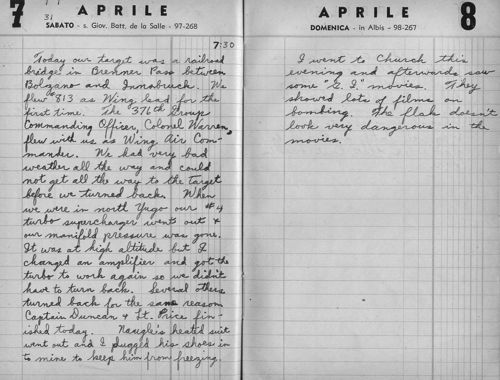 7 APRILE
31
SABATO - s. Giov. Batt. de la Salle - 97-268
7:30
Today our target was a railroad
bridge in Brenner Pass between
Bolzano and Innsbruck. We
flew 813 as Wing lead for the
first time. The 376th Group
Commanding Officer, Colonel Warren,
flew with us as Wing Air Com-
mander. We had very bad
weather all the way and could
not get all the way to the target
before we turned back. When
we were in north Yugo our #4
turbo supercharger went out &
our manifold pressure was gone.
It was at high altitude but I
changed an amplifier and got the
turbo to work again so we didn't
have to turn back. Several others
turned back for the same reason
Captain Duncan & Lt. Price fin-
ished today. Naugle's heated suit
went out and I plugged his shoes in
to mine to keep him from freezing.
APRILE 8
DOMENICA - in Albis - 98-267
I went to Church this
evening and afterwards saw
some "G.I." movies. They
showed lots of films on
bombing. The flak doesn't
look very dangerous in the
movies.